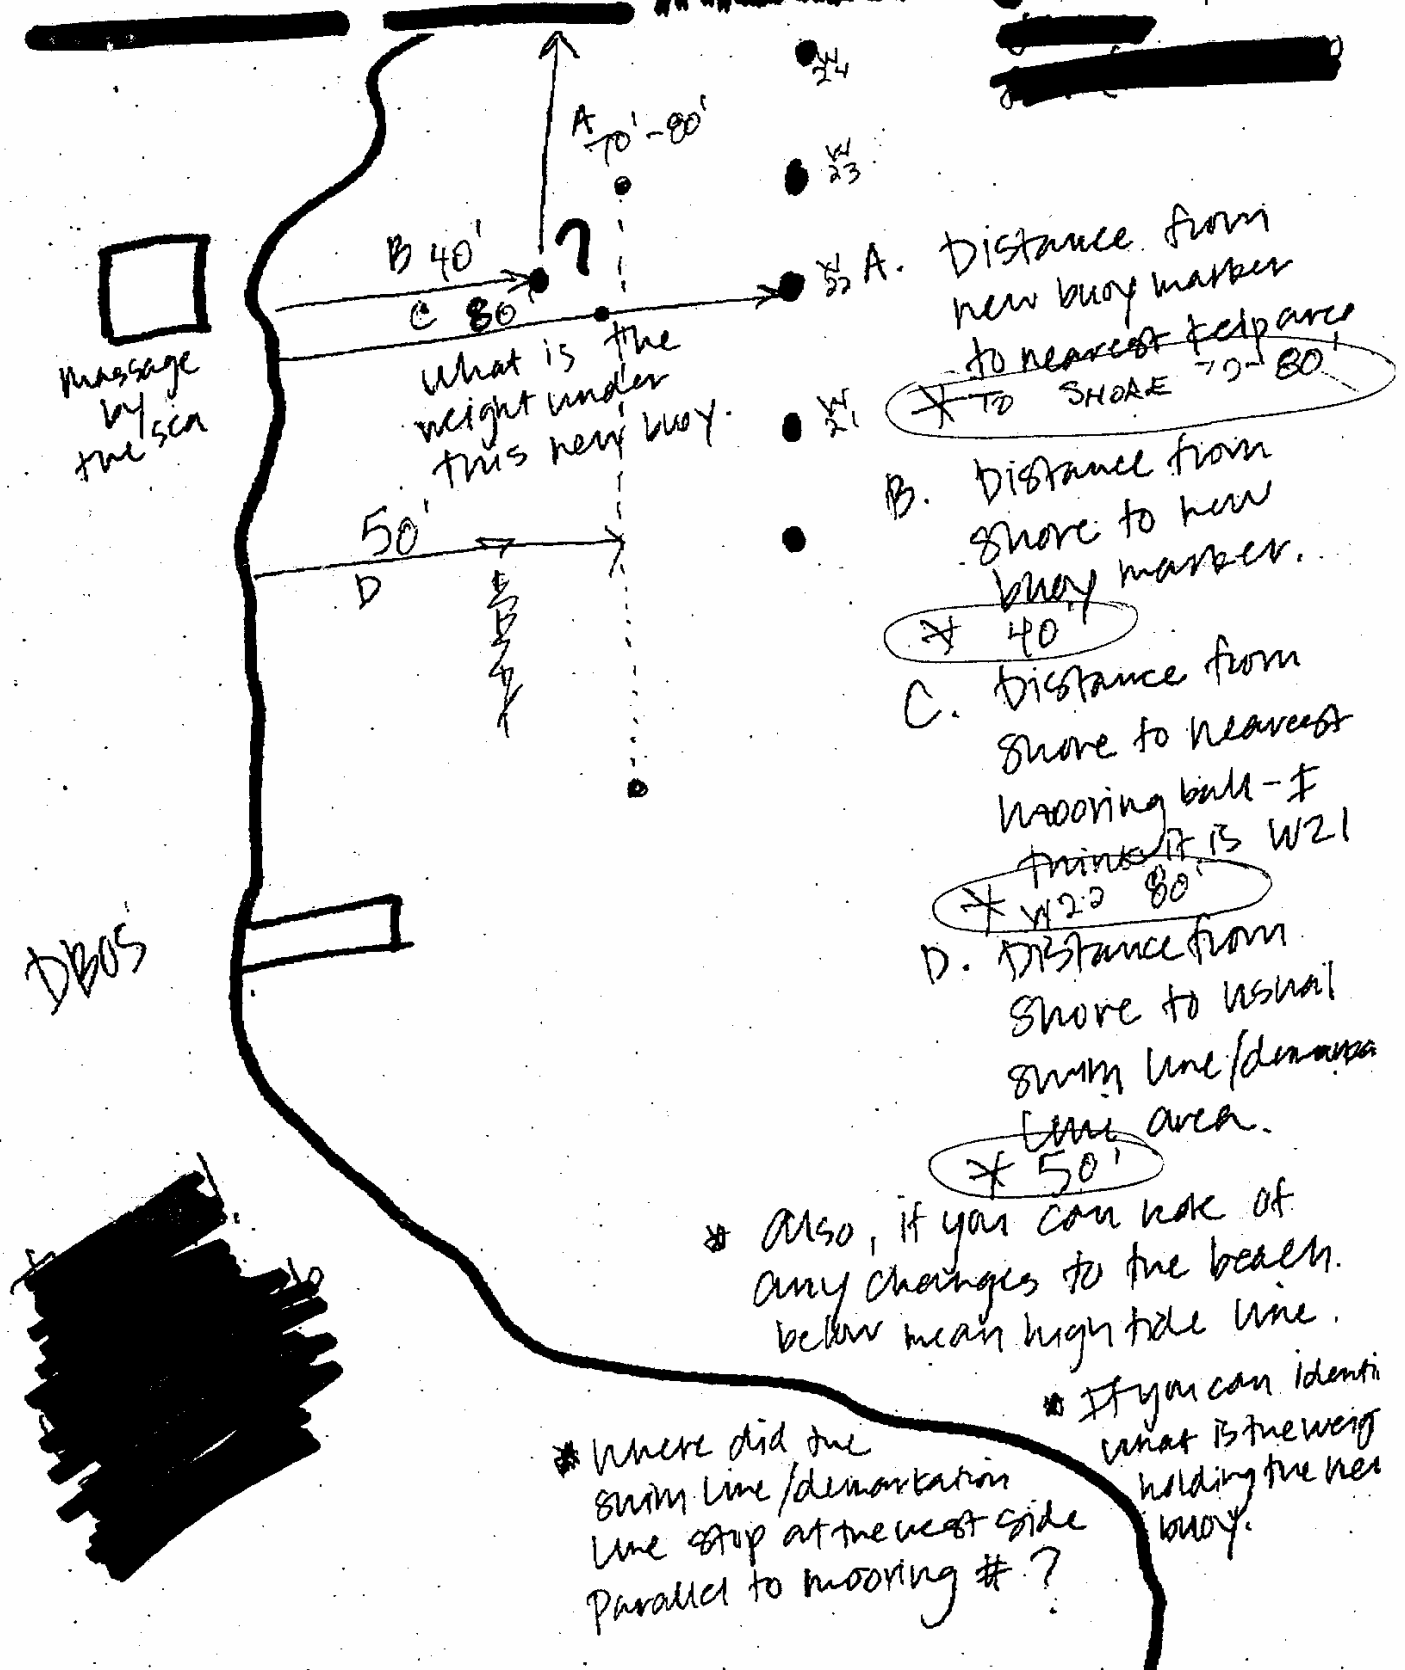 W
24
A
70'-80'
W
23
B 40'
?
C 80'
W
22
massage
by
the sea
What is the
weight under
this new buoy.
W
21
50'
D
DBOS
A. Distance from
new buoy marker
to nearest
* TO SHORE 70-80'
B. Distance from
shore to new
buoy marker.
* 40'
C. Distance from
shore to nearest
mooring ball - I
think it is W21
* W22 80'
D. Distance from
shore to usual
swim line/
line area.
* 50'
* Also, if you can note of
any changes to the beach
below mean high tide line.
* If you can identi
what is the weig
holding the ne
buoy.
* Where did the
swim line/demarkation
line stop at the west side
Parallel to mooring #?